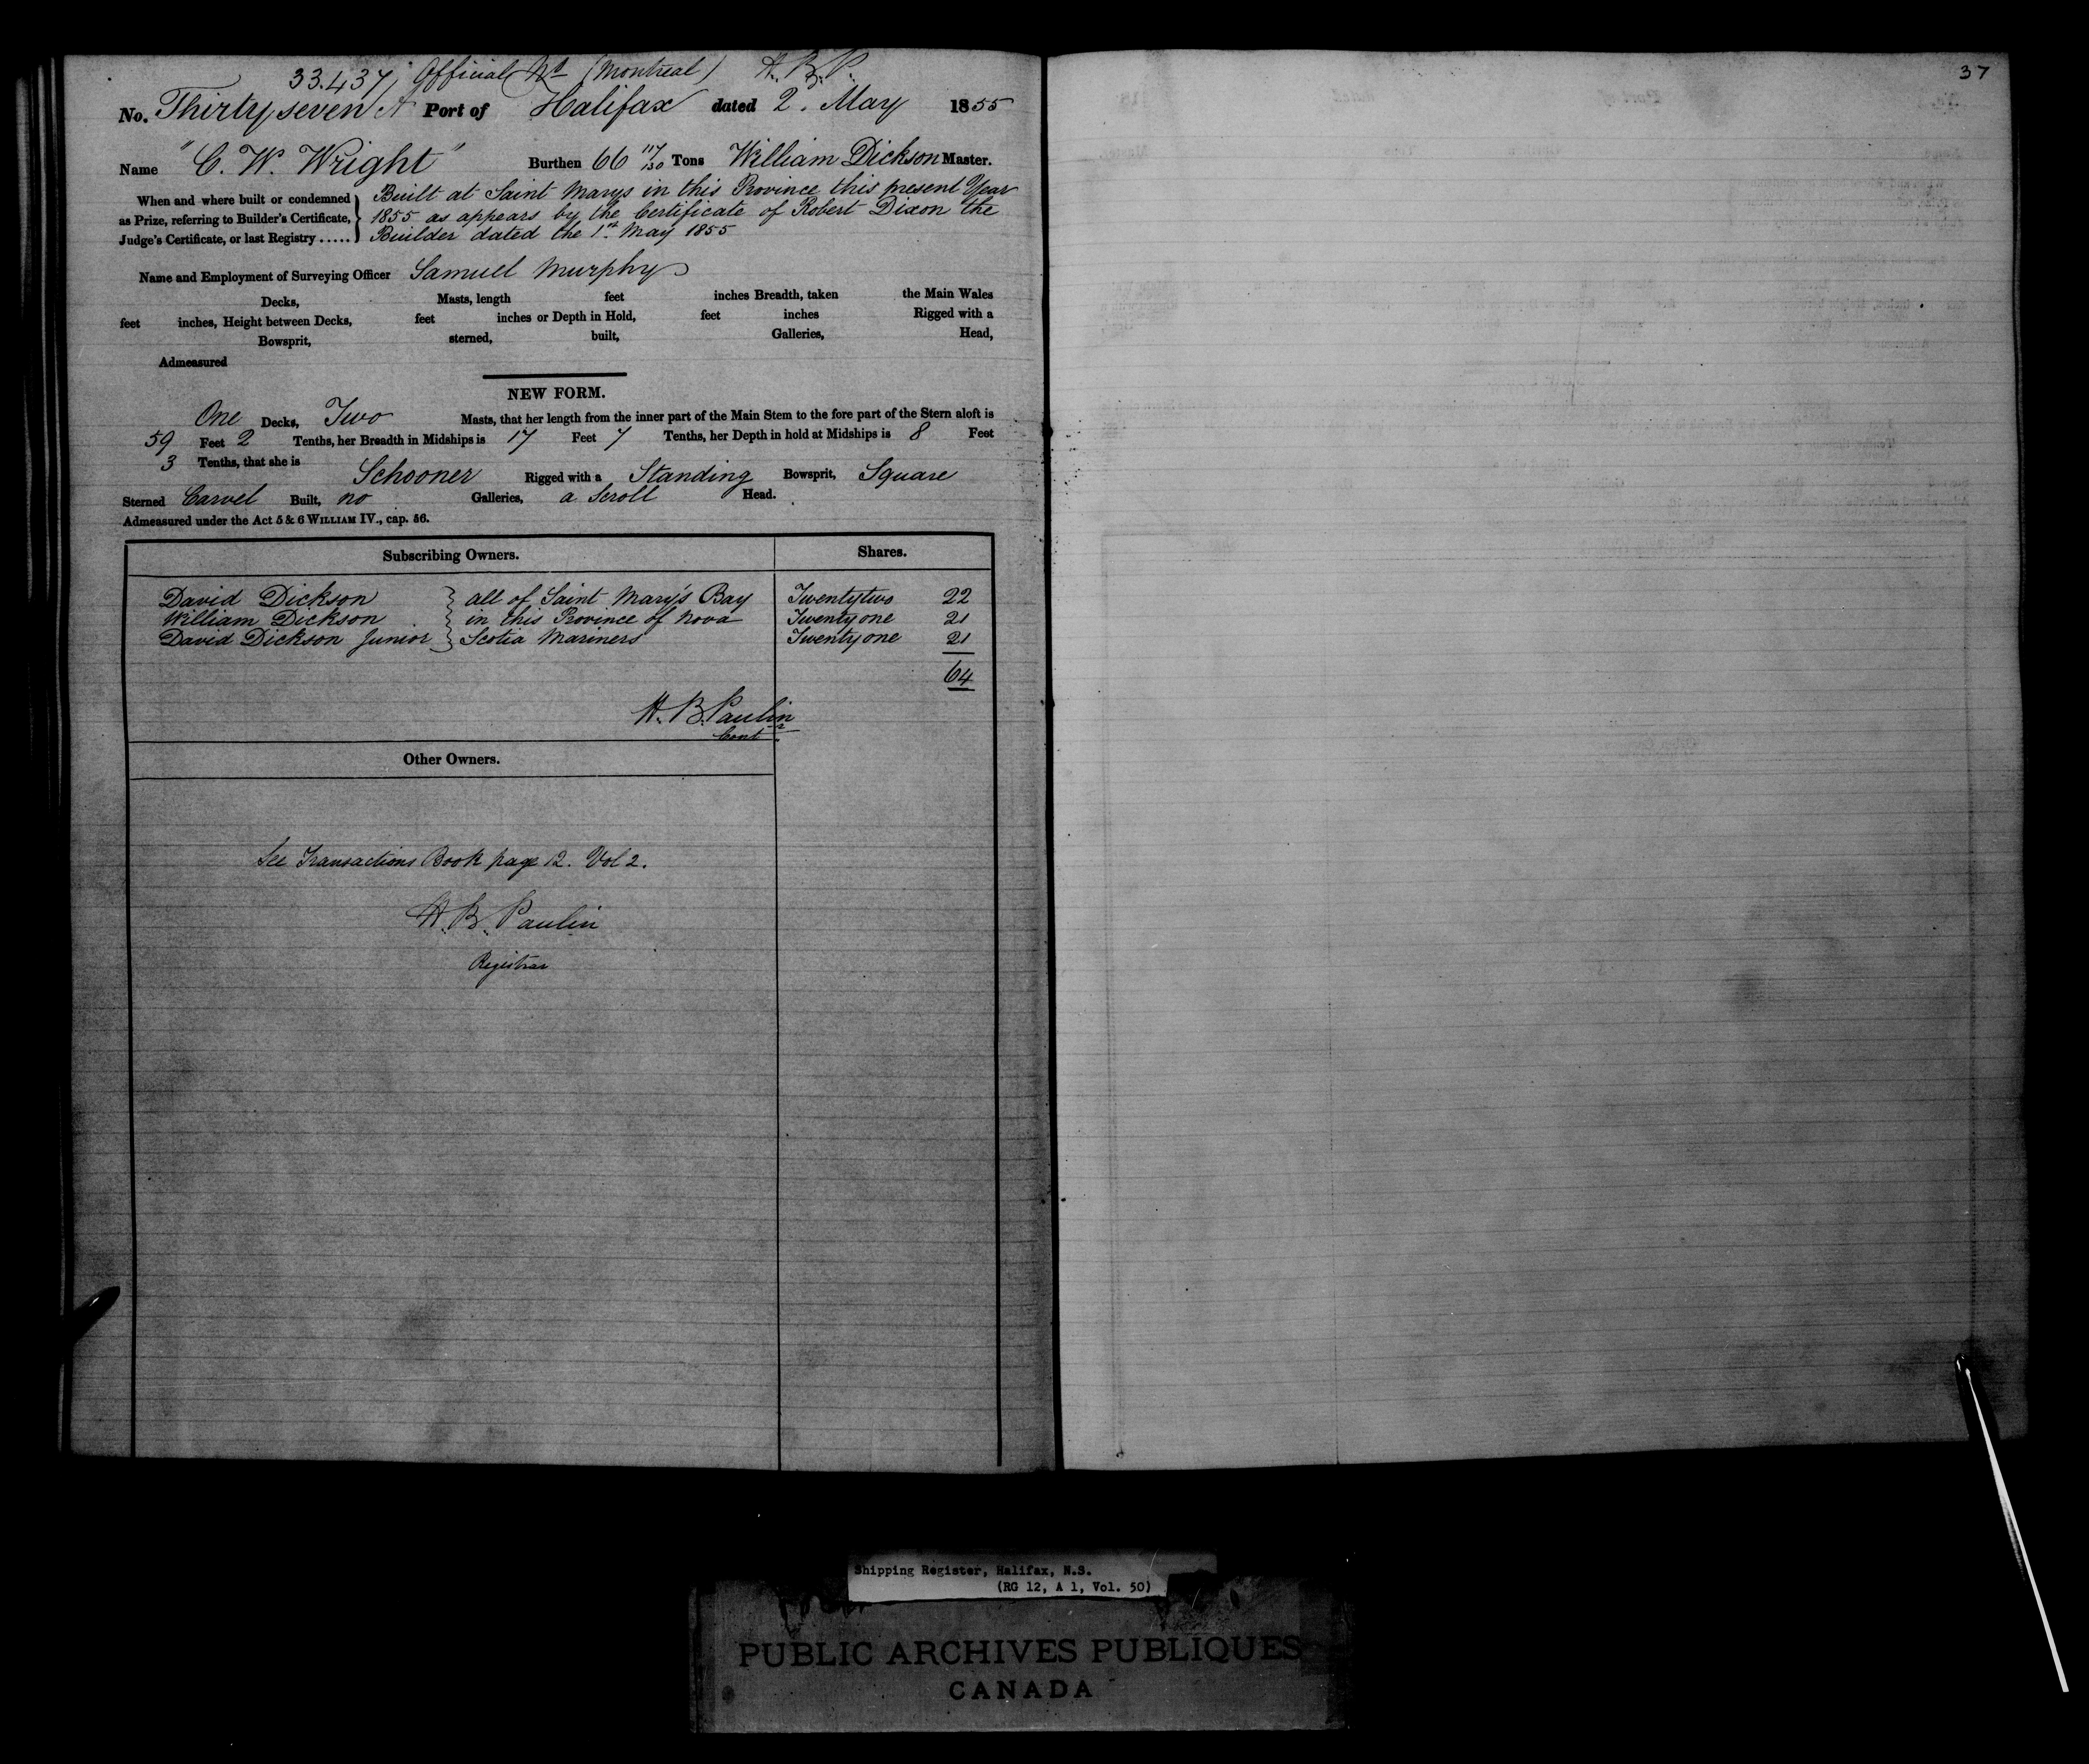 33.437, Official No (Montreal) H. B. P.
No. Thirty seven A Port of Halifax dated 2. May 1855
Name "C. W. Wright" Burthen 66 117/130 Tons William Dickson Master.
When and where built or condemned as Prize, referring to Builder's Certificate, Judge's Certificate, or last Registry .....
Built at Saint Marys in this Province this present Year
1855 as appears by the Certificate of Robert Dixon the
Builder dated the 1st May 1855
Name and Employment of Surveying Officer Samuel Murphy
Decks, Masts, length feet inches Breadth, taken the Main Wales
feet inches, Height between Decks, feet inches or Depth in Hold, feet inches Rigged with a
Bowsprit, sterned, built, Galleries, Head,
Admeasured
NEW FORM.
One Decks, Two Masts, that her length from the inner part of the Main Stem to the fore part of the Stern aloft is
59 Feet 2 Tenths, her Breadth in Midships is 17 Feet 7 Tenths, her Depth in hold at Midships is 8 Feet
3 Tenths, that she is Schooner Rigged with a Standing Bowsprit, Square
Sterned Carvel Built, no Galleries, a Scroll Head.
Admeasured under the Act 5 & 6 WILLIAM IV., cap. 56.
Subscribing Owners. Shares.
David Dickson } all of Saint Mary's Bay Twentytwo 22
William Dickson } in this Province of Nova Twenty one 21
David Dickson Junior } Scotia Mariners Twenty one 21
64
H. B. Paulin
Contr
Other Owners.
See Transactions Book page 12. Vol 2.
H. B. Paulin
Registrar
37
Shipping Register, Halifax, N.S.
(RG 12, A 1, Vol. 50)
PUBLIC ARCHIVES PUBLIQUES
CANADA